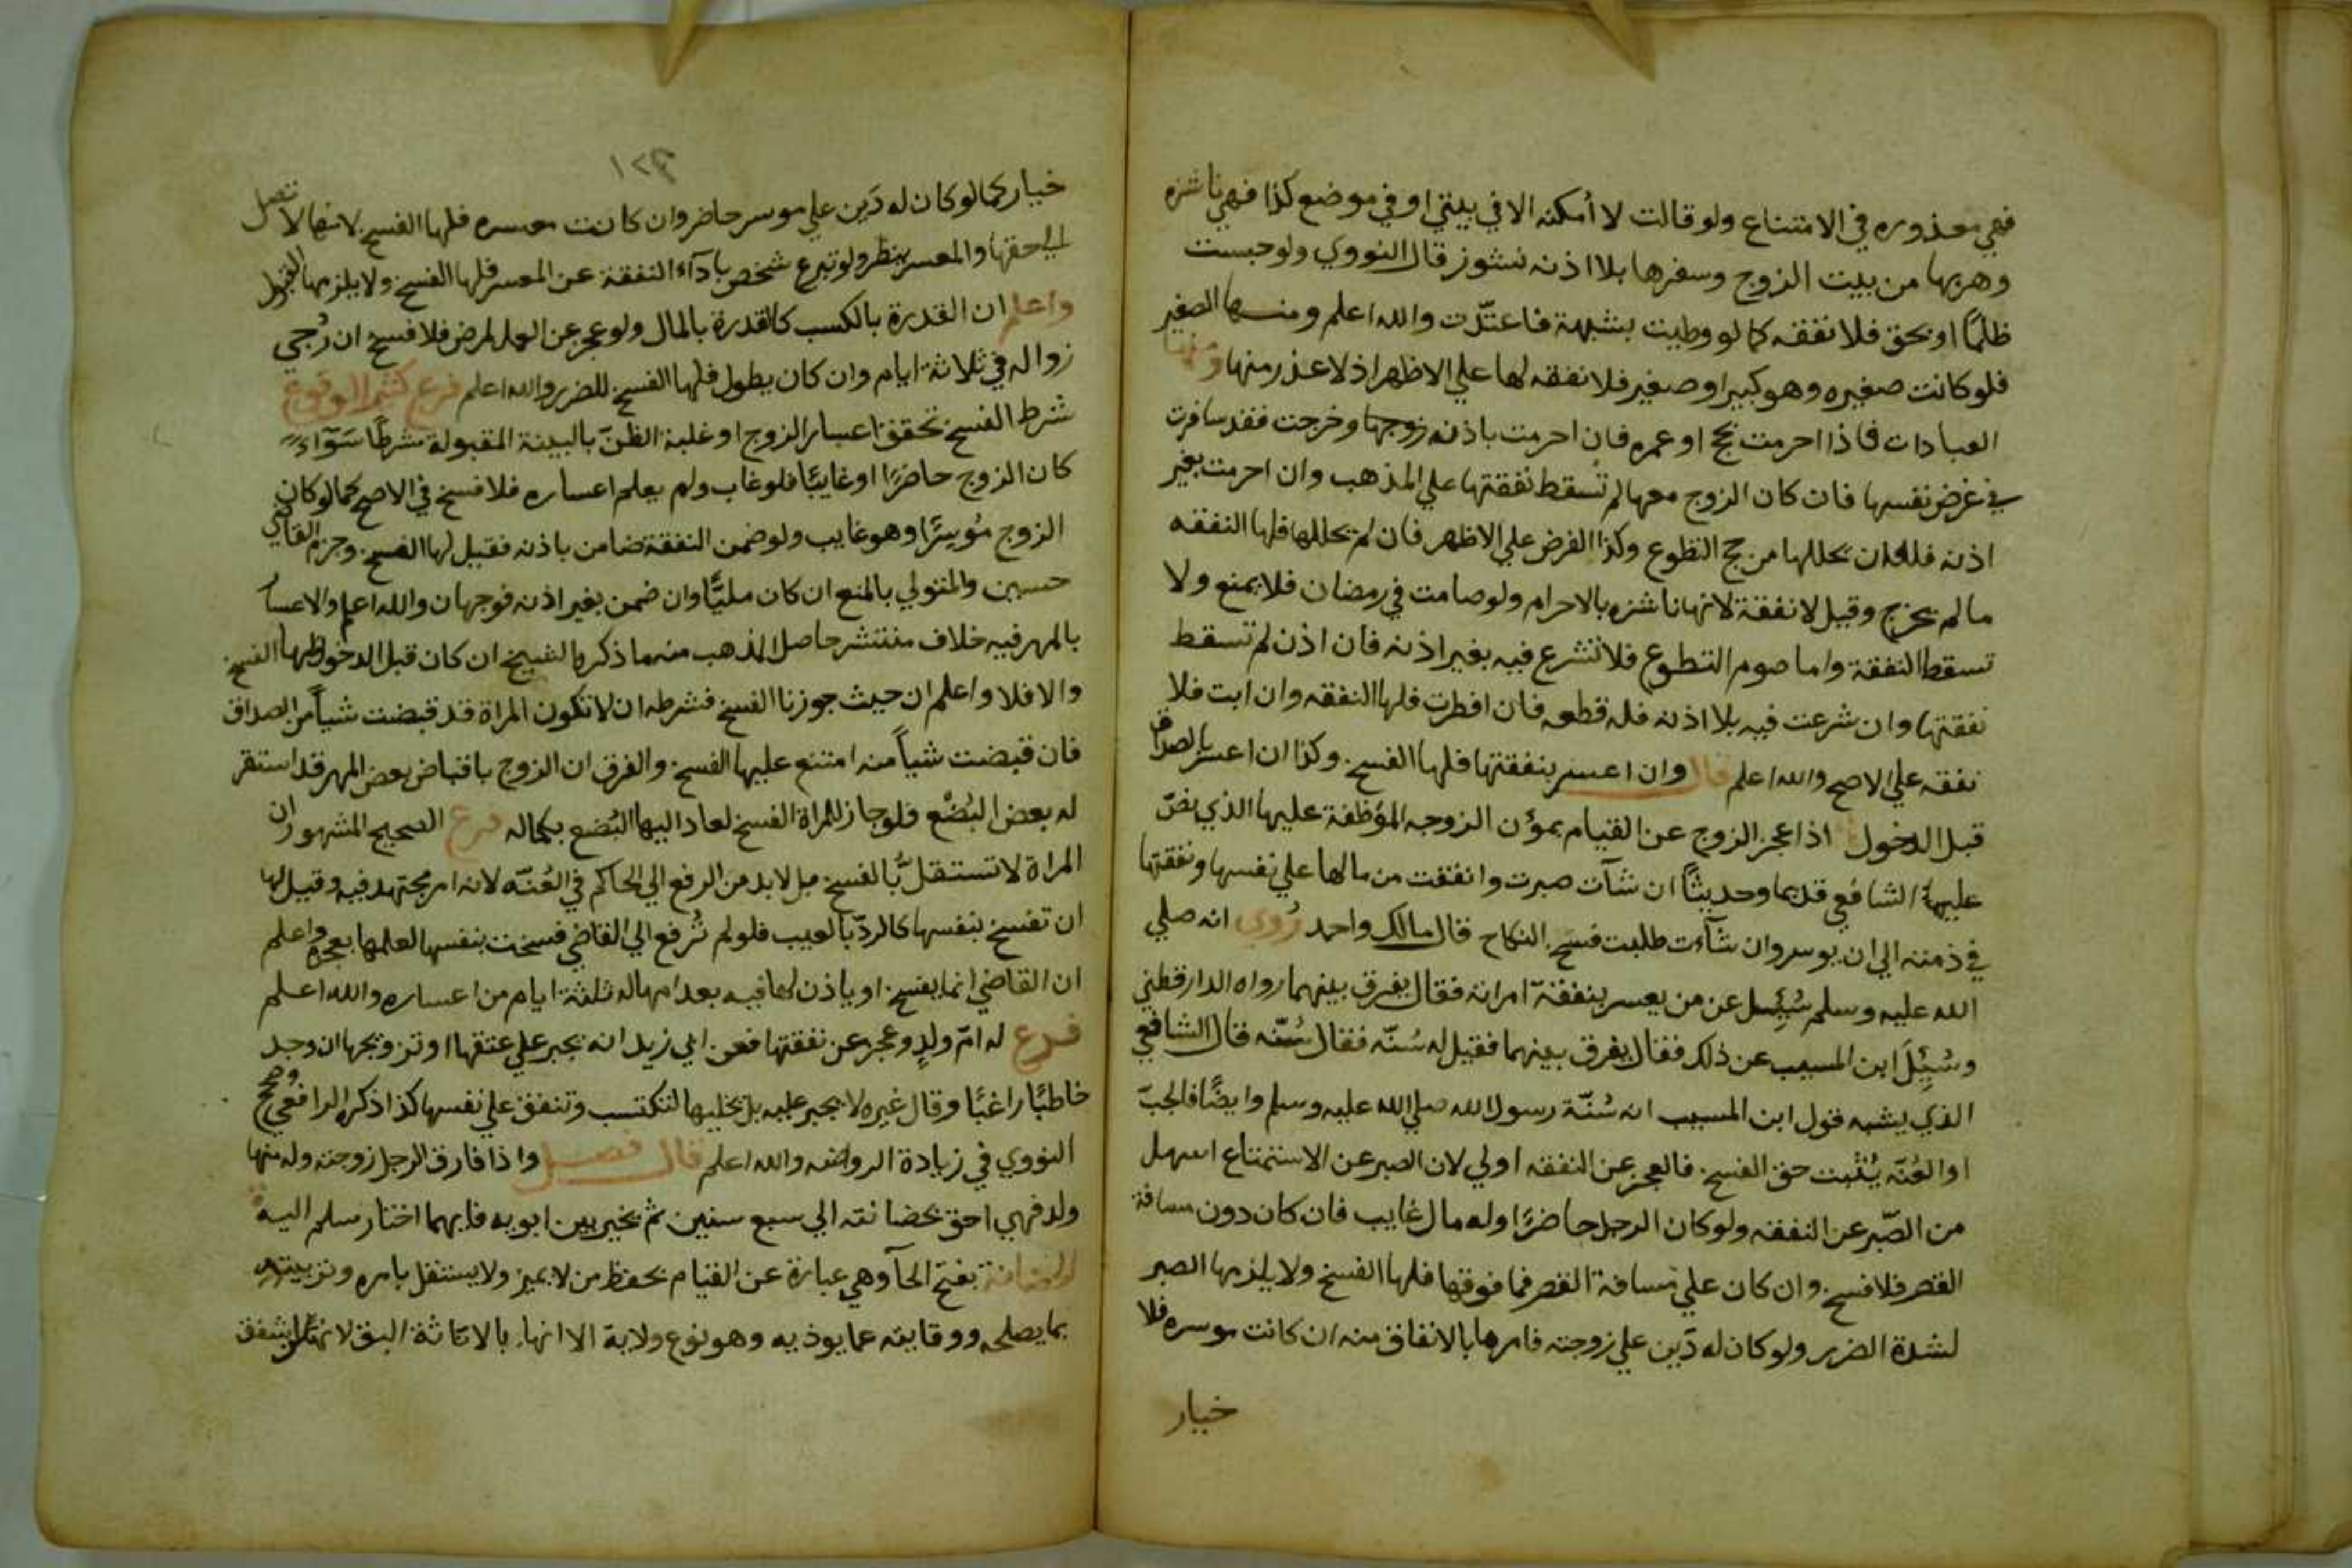 فهي معذوره في الامتناع ولو قالت لا أمكنه الا في بيتي او في موضع كذا فهي ناشزه
وهربها من بيت الزوج وسفرها بلا اذنه نشوز قال النووي ولو حبست
ظلمًا او بحق فلا نفقه كما لو وطيت بشبهة فاعتدّت والله اعلم ومنها الصغير
فلو كانت صغيره وهو كبير او صغير فلا نفقه لها علي الاظهر اذ لا عذر منها ومنها
العبادات فاذا احرمت بحج او عمره فان احرمت باذنه زوجها وخرجت فقد سافرت
في غرض نفسها فان كان الزوج معها لم تسقط نفقتها علي المذهب وان احرمت بغير
اذنه فله ان يحللها من حج التطوع وكذا الفرض علي الاظهر فان لم يحللها فلها النفقه
ما لم يخرج وقيل لا نفقة لانها ناشزه بالاحرام ولو صامت في رمضان فلا يمنع ولا
تسقط النفقة واما صوم التطوع فلا تشرع فيه بغير اذنه فان اذن لم تسقط
نفقتها وان شرعت فيه بلا اذنه فله قطعه فان افطرت فلها النفقه وان ابت فلا
نفقه علي الاصح والله اعلم قال وان اعسر بنفقتها فلها الفسخ وكذا ان اعسر بالصداق
قبل الدخول اذا عجز الزوج عن القيام بمؤن الزوجه المؤظفة عليها الذي نصّ
عليه الشافعي قديما وحديثًا ان شآت صبرت وانفقت من مالها علي نفسها ونفقتها
في ذمته الي ان يوسر وان شآءت طلبت فسخ النكاح قال مالك واحمد رُوي انه صلي
الله عليه وسلم سُئِل عن من يعسر بنفقة امراته فقال يفرق بينهما رواه الدارقطني
وسُئِلَ ابن المسيب عن ذلك فقال يفرق بينهما فقيل له سُنّه فقال سُنّه قال الشافعي
الذي يشبه قول ابن المسيب انه سُنّة رسول الله صلي الله عليه وسلم وايضًا فالجبّ
او العُنّه يُثبت حق الفسخ فالعجز عن النفقه اولي لان الصبر عن الاستمتاع اسهل
من الصّبر عن النفقه ولو كان الرجل حاضرًا وله مال غايب فان كان دون مسافة
القصر فلا فسخ وان كان علي مسافة القصر فما فوقها فلها الفسخ ولا يلزمها الصبر
لشدة الضرر ولو كان له دَين علي زوجته فامرها بالانفاق منه ان كانت موسره فلا
خيار
١٢٣
خيار كما لو كان له دَين علي موسر حاضر وان كانت معسره فلها الفسخ لانها لا تصل
الي حقها والمعسر ينظر ولو تبرع شخص بادآء النفقة عن المعسر فلها الفسخ ولا يلزمها القبول
واعلم ان القدرة بالكسب كالقدرة بالمال ولو عجز عن العمل لمرض فلا فسخ ان رُجي
زواله في ثلاثة ايام وان كان يطول فلها الفسخ للضرر والله اعلم فرع كثير الوقوع
شرط الفسخ تحقق اعسار الزوج او غلبة الظنّ بالبينة المقبولة شرطًا سَوآءً
كان الزوج حاضرًا او غايبًا فلو غاب ولم يعلم اعساره فلا فسخ في الاصح كما لو كان
الزوج مُوسِرًا وهو غايب ولو ضمن النفقة ضامن باذنه فقيل لها الفسخ وجزم القاضي
حسين والمتولي بالمنع ان كان مليًّا وان ضمن بغير اذنه فوجهان والله اعلم والاعسار
بالمهر فيه خلاف منتشر حاصل المذهب منه ما ذكره الشيخ ان كان قبل الدخول فلها الفسخ
والا فلا واعلم ان حيث جوزنا الفسخ فشرطه ان لا تكون المراة قد قبضت شيأ من الصداق
فان قبضت شيأ منه امتنع عليها الفسخ والفرق ان الزوج باقباض بعض المهر قد استقر
له بعض البُضْع فلو جاز للمراة الفسخ لعاد اليها البُضع بكماله فرع الصحيح المشهور ان
المراة لا تستقل بالفسخ بل لا بد من الرفع الي الحاكم في العُنّه لانه امر مجتهد فيه وقيل لها
ان تفسخ بنفسها كالردّ بالعيب فلو لم تُرفع الي القاضي فسخت بنفسها لعلمها بعجزه واعلم
ان القاضي انما يفسخ او ياذن لها فيه بعد امهاله ثلثة ايام من اعساره والله اعلم
فرع له امّ ولدٍ وعجز عن نفقتها فعن ابي زيد انه يجبر علي عتقها او تزويجها ان وجد
خاطبًا راغبًا وقال غيره لا يجبر عليه بل يخليها لتكتسب وتنفق علي نفسها كذا ذكره الرافعي وصحح
النووي في زيادة الروضه والله اعلم قال فصل واذا فارق الرجل زوجته وله منها
ولد فهي احق بحضانته الي سبع سنين ثم يخير بين ابويه فايهما اختار سلم اليه
الحضانة بفتح الحآ وهي عبارة عن القيام بحفظ من لا يميز ولا يستقل بامره وتربيته
بما يصلحه ووقايته عما يوذيه وهو نوع ولاية الا انها بالاناثة اليق لانهن اشفق